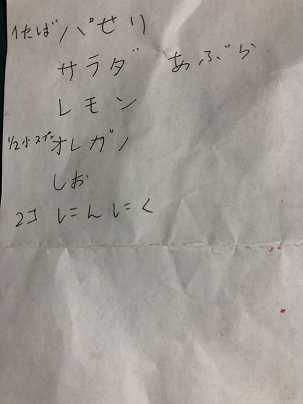 1たば パセリ
サラダ あぶら
レモン
1/2小スプーン オレガノ
しお
2コ にんにく